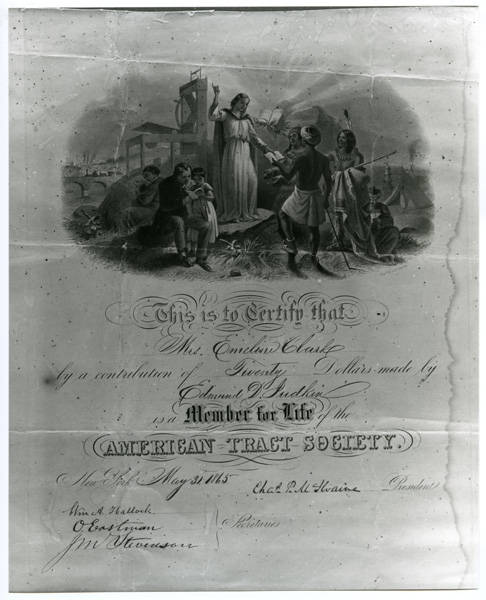 This is to Certify that
Mrs. Emeline Clark
by a contribution of Twenty Dollars made by
Edmund D. Judkin
is a Member for Life of the
AMERICAN TRACT SOCIETY.
New York May 31 1865
Chas. P. McIlvaine President
Wm. A. Hallock
O Eastman Secretaries
J M Stevenson